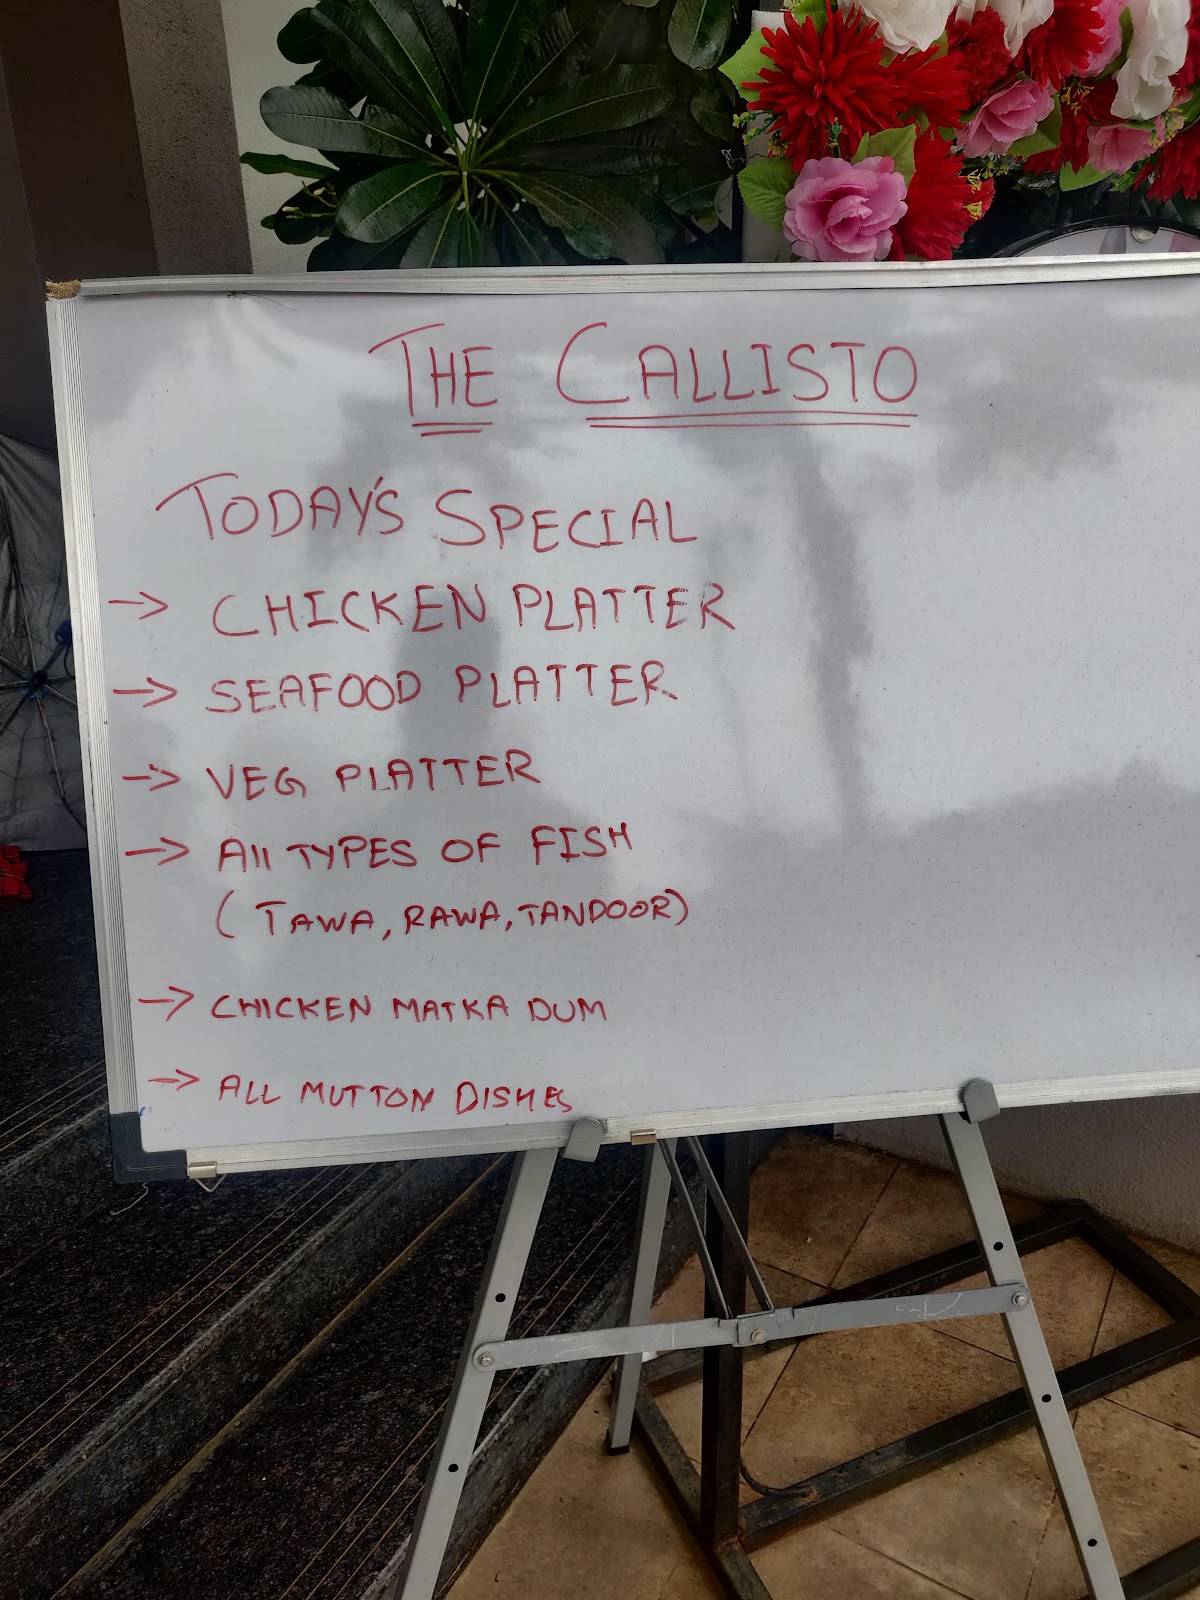 THE CALLISTO
TODAY'S SPECIAL
→ CHICKEN PLATTER
→ SEAFOOD PLATTER
→ VEG PLATTER
→ All TYPES OF FISH
(TAWA, RAWA, TANDOOR)
→ CHICKEN MATKA DUM
→ ALL MUTTON DISHES